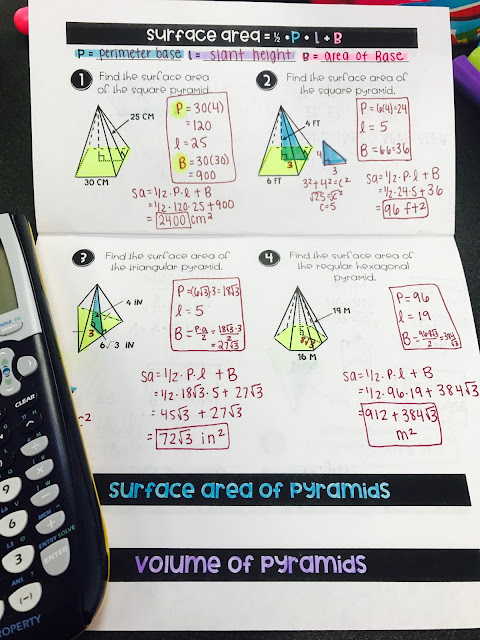 Surface area = ½ • P • l + B
P = perimeter base l = slant height B = area of Base
1 Find the surface area
of the square pyramid.
25 CM
30 CM
P = 30(4)
= 120
l = 25
B = 30(30)
= 900
sa = 1/2 · P · l + B
= 1/2 · 120 · 25 + 900
= 2400 cm²
2 Find the surface area of
the square pyramid.
4 FT
3
6 FT
4
3
3² + 4² = c²
√25 = √c²
c = 5
P = 6(4) = 24
l = 5
B = 6·6 = 36
sa = 1/2 · P · l + B
= 1/2 · 24 · 5 + 36
= 96 ft²
3 Find the surface area of
the triangular pyramid.
4 IN
3
6√3 IN
P = (6√3)·3 = 18√3
l = 5
B = P·a/2 = 18√3·3/2
= 27√3
sa = 1/2 · P · l + B
= 1/2 · 18√3 · 5 + 27√3
= 45√3 + 27√3
= 72√3 in²
4 Find the surface area of
the regular hexagonal
pyramid.
19 M
8√3
16 M
P = 96
l = 19
B = 96·8√3/2 = 384√3
sa = 1/2 · P · l + B
= 1/2 · 96 · 19 + 384√3
= 912 + 384√3
m²
Surface area of Pyramids
Volume of Pyramids
CLEAR
9
6
3
(−)
ENTRY SOLVE
ENTER
ANS
PROPERTY